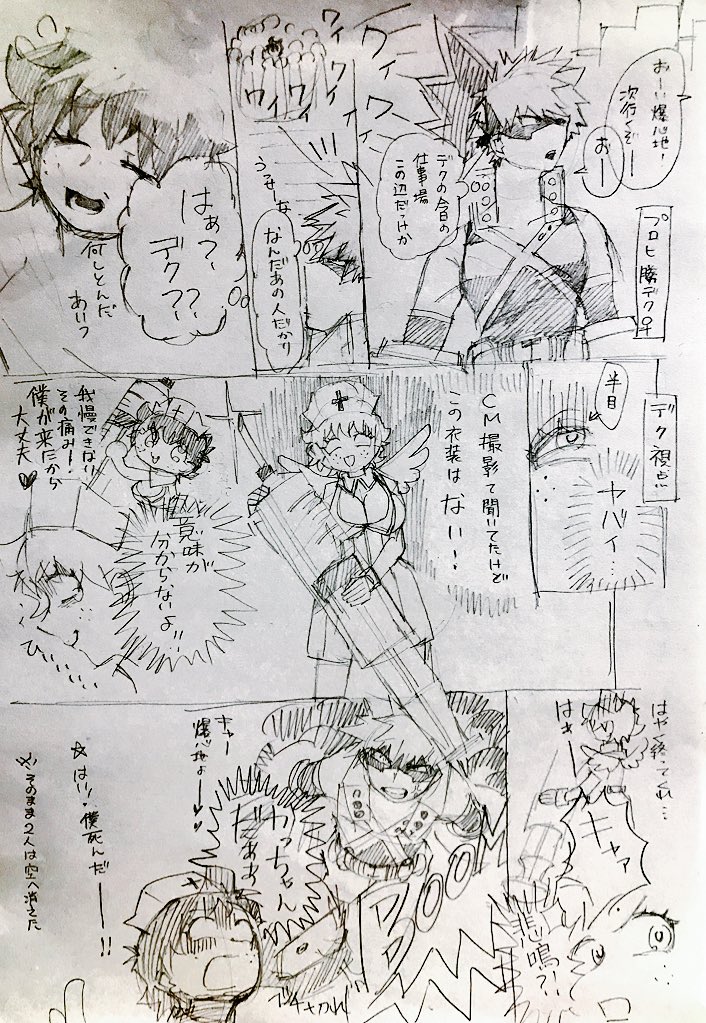 プロヒ勝デク♀
おーい爆心地!
次行くぞー
おー
デクの今日の
仕事場
この辺だっけか
ワイ
ワイ
ワイ
ワイ
ワイ
ワイ
うっせーな
なんだあの人だかり
はぁっ、??
デクっ、
何しとんだ
あいつ
デク視点
半目
ヤバイ…
CM撮影て聞いてたけど
この衣装はない!!
我慢できない
その痛み!
僕が来たから
大丈夫♥
意味が
分からないよ!!
ひぃぃぃぃ
はやく終ってくれ…
はぁー
キャァ
悲鳴?!
BOOM
キャー
爆心地よー♥
かっちゃん
だぁぁ
ブチギレ
☆はい!僕死んだー!!
※そのまま2人は空へ消えた